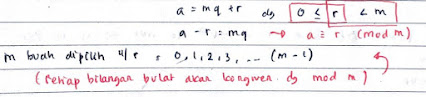 a = mq + r dg 0 ≤ r < m
a - r = mq → a ≡ r (mod m)
m buah dipilih u/ r = 0, 1, 2, 3, ... (m - 1)
(setiap bilangan bulat akan kongruen dg mod m)